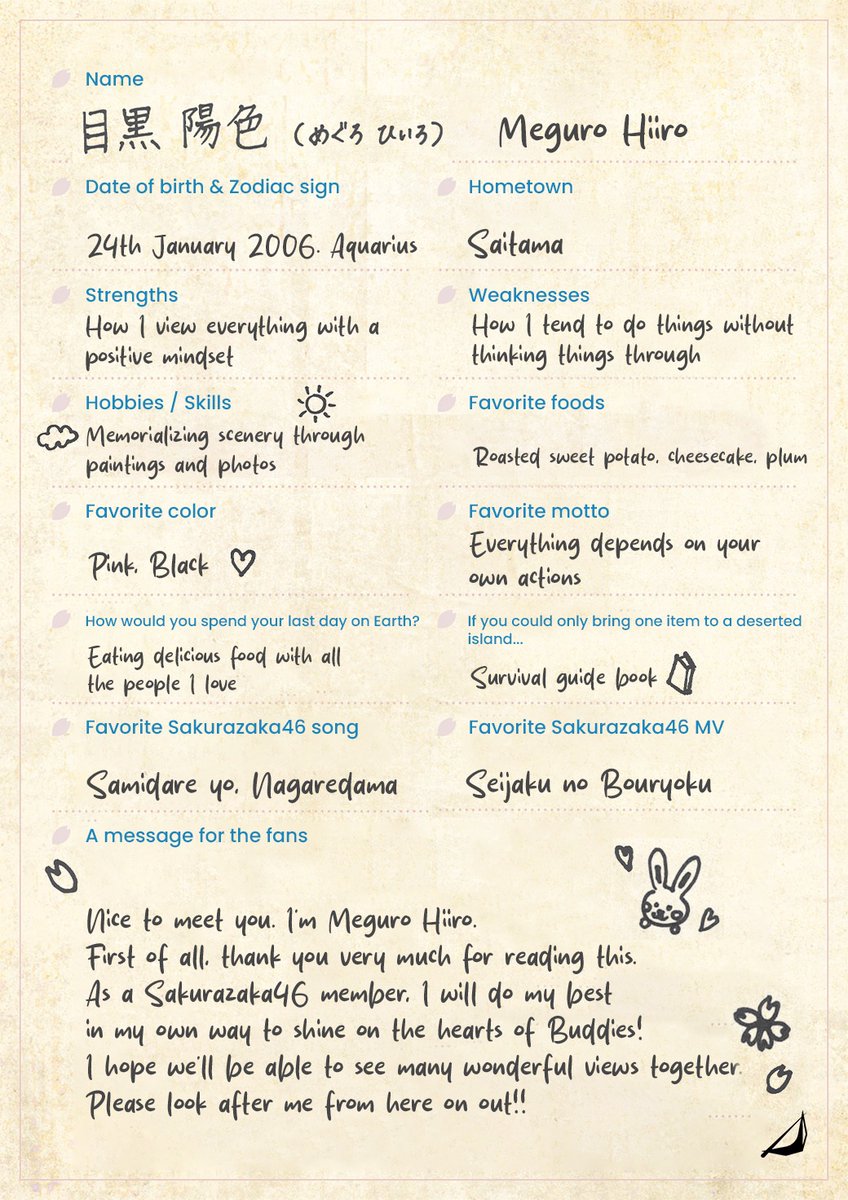 Name
目黒 陽色 (めぐろ ひいろ) Meguro Hiiro
Date of birth & Zodiac sign
24th January 2006. Aquarius
Hometown
Saitama
Strengths
How I view everything with a
positive mindset
Weaknesses
How I tend to do things without
thinking things through
Hobbies / Skills
Memorializing scenery through
paintings and photos
Favorite foods
Roasted sweet potato, cheesecake, plum
Favorite color
Pink, Black
Favorite motto
Everything depends on your
own actions
How would you spend your last day on Earth?
Eating delicious food with all
the people I love
If you could only bring one item to a deserted
island...
Survival guide book
Favorite Sakurazaka46 song
Samidare yo, Nagaredama
Favorite Sakurazaka46 MV
Seijaku no Bouryoku
A message for the fans
Nice to meet you. I'm Meguro Hiiro.
First of all, thank you very much for reading this.
As a Sakurazaka46 member, I will do my best
in my own way to shine on the hearts of Buddies!
I hope we'll be able to see many wonderful views together.
Please look after me from here on out!!